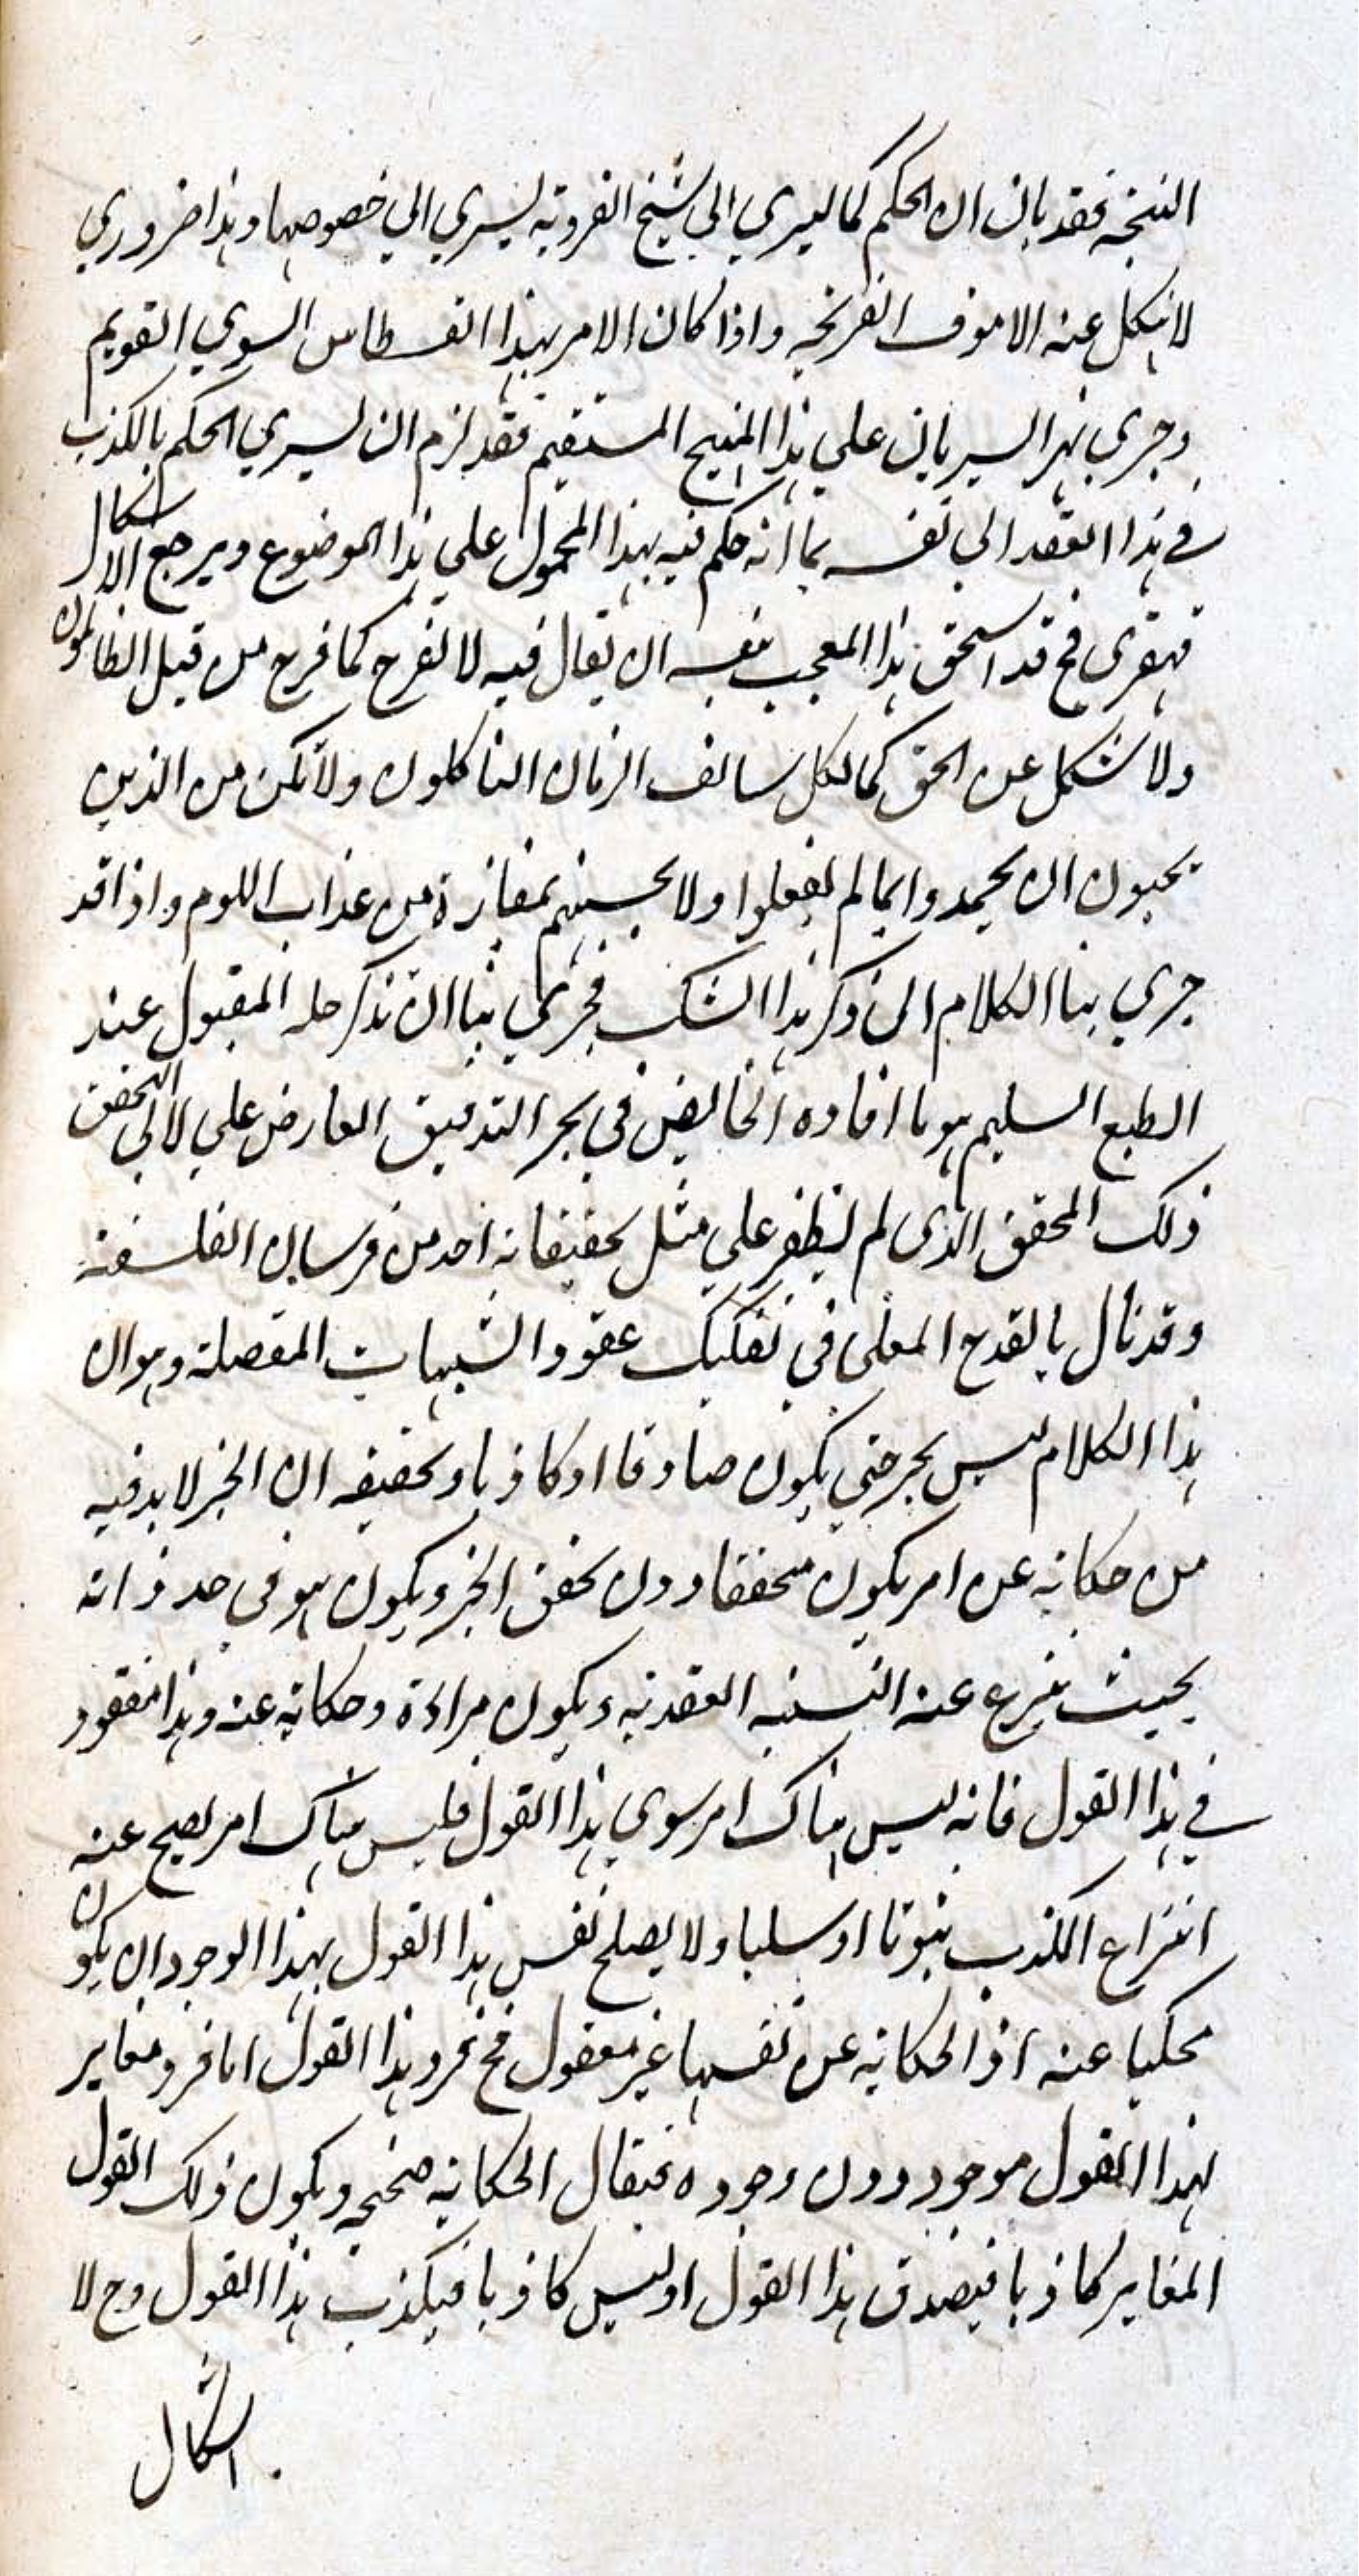 فقد بان ان الحكم كما يسري الى شيخ الفردية يسري الي خصوصها وهذا ضروري
لا ينكل عنه الا موف القريحه واذا كان الامر بهذا القسطاس السوي القويم
وجري نهر السريان علي هذا المنهج المستقيم فقد لزم ان يسري الحكم بالكذب
في هذا العقد الي نفسه بما انه حكم فيه بهذا المحمول علي هذا الموضوع ويرجع الاشكال
قهقرى فح قد استحق هذا المعجب بنفسه ان يقال فيه لا تفرح كما فرح من قبل الظالمون
ولا تنكل عن الحق كما نكل سالف الزمان الناكلون ولا تكن من الذين
يحبون ان يحمدوا بما لم يفعلوا ولا تحسبنهم بمفازة من عذاب اللوم واذا قد
جري بنا الكلام الى ذكر هذا الشك فحري بنا ان نذكر حله المقبول عند
الطبع السليم هو ما افاده الخايض في بحر التدقيق العارض علي لالي التحقق
ذلك المحقق الذى لم يظفر علي مثل تحقيقاته احد من فرسان الفلسفة
وقد نال بالقدح المعلى في تفكيك عقود الشبهات المعضلة وهو ان
هذا الكلام ليس بخبر حتى يكون صادقا او كاذبا وتحقيقه ان الخبر لا بد فيه
من حكاية عن امر يكون متحققا دون تحقق الخبر ويكون هو في حد ذاته
بحيث ينتزع عنه النسبة العقدية ويكون مراة وحكاية عنه وهذا مفقود
في هذا القول فانه ليس هناك امر سوى هذا القول فليس هناك امر يصح عنه
انتزاع الكذب ثبوتا او سلبا ولا يصلح نفس هذا القول بهذا الوجود ان يكون
محكيا عنه اذ الحكاية عن نفسها غير معقول فح فرد هذا القول اما فرد مغاير
لهذا القول موجود دون وجوده فيقال الحكاية صحيحه ويكون ذلك القول
المغاير كاذبا فيصدق هذا القول او ليس كاذبا فيكذب هذا القول وح لا
اشكال